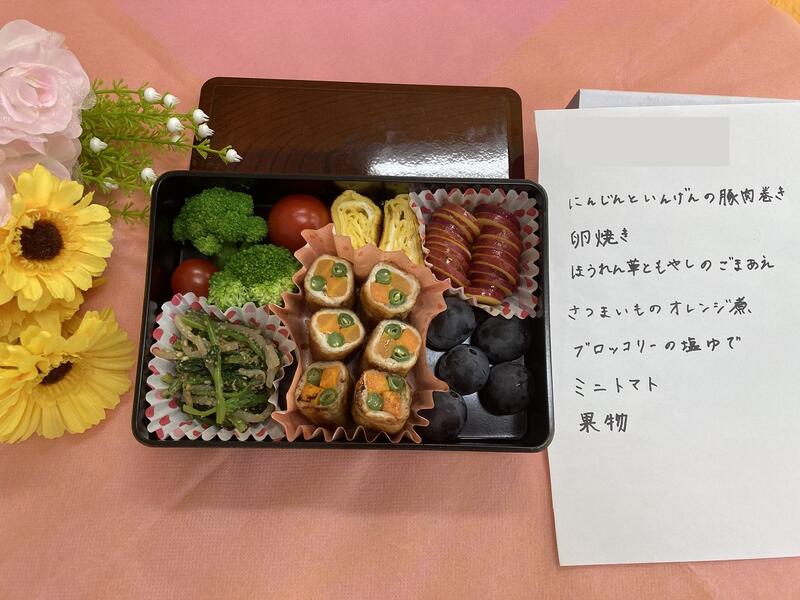 にんじんといんげんの豚肉巻き
卵焼き
ほうれん草ともやしのごまあえ
さつまいものオレンジ煮
ブロッコリーの塩ゆで
ミニトマト
果物